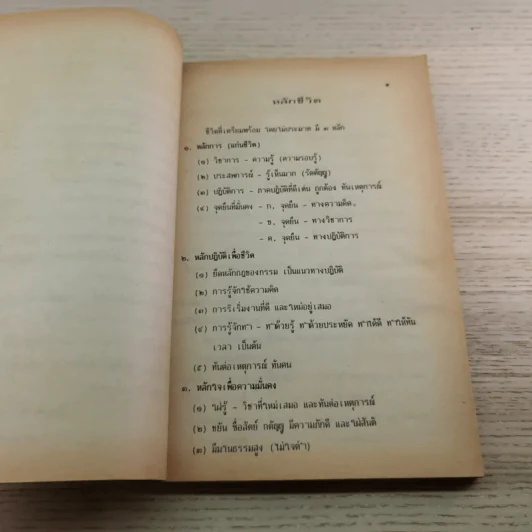 ๑
หลักชีวิต
ชีวิตที่เตรียมพร้อม โดยไม่ประมาท มี ๓ หลัก
๑. หลักการ (แก่นชีวิต)
(๑) วิชาการ - ความรู้ (ความรอบรู้)
(๒) ประสพการณ์ - รู้เห็นมาก (รัตตัญญู)
(๓) ปฏิบัติการ - ภาคปฏิบัติที่ดีเด่น ถูกต้อง ทันเหตุการณ์
(๔) จุดยืนที่มั่นคง - ก. จุดยืน - ทางความคิด.
- ข. จุดยืน - ทางวิชาการ
- ค. จุดยืน - ทางปฏิบัติการ
๒. หลักปฏิบัติเพื่อชีวิต
(๑) ยึดหลักกฎของกรรม เป็นแนวทางปฏิบัติ
(๒) การรู้จักใช้ความคิด
(๓) การริเริ่มงานที่ดี และใหม่อยู่เสมอ
(๔) การรู้จักทำ - ทำด้วยรู้ ทำด้วยประหยัด ทำให้ดี ทำให้ทัน
เวลา เป็นต้น
(๕) ทันต่อเหตุการณ์ ทันคน
๓. หลักใจเพื่อความมั่นคง
(๑) ใฝ่รู้ - วิชาที่ใหม่เสมอ และทันต่อเหตุการณ์
(๒) ขยัน ซื่อสัตย์ กตัญญู มีความภักดี และใฝ่สันติ
(๓) มีมโนธรรมสูง (ไม่ใจดำ)